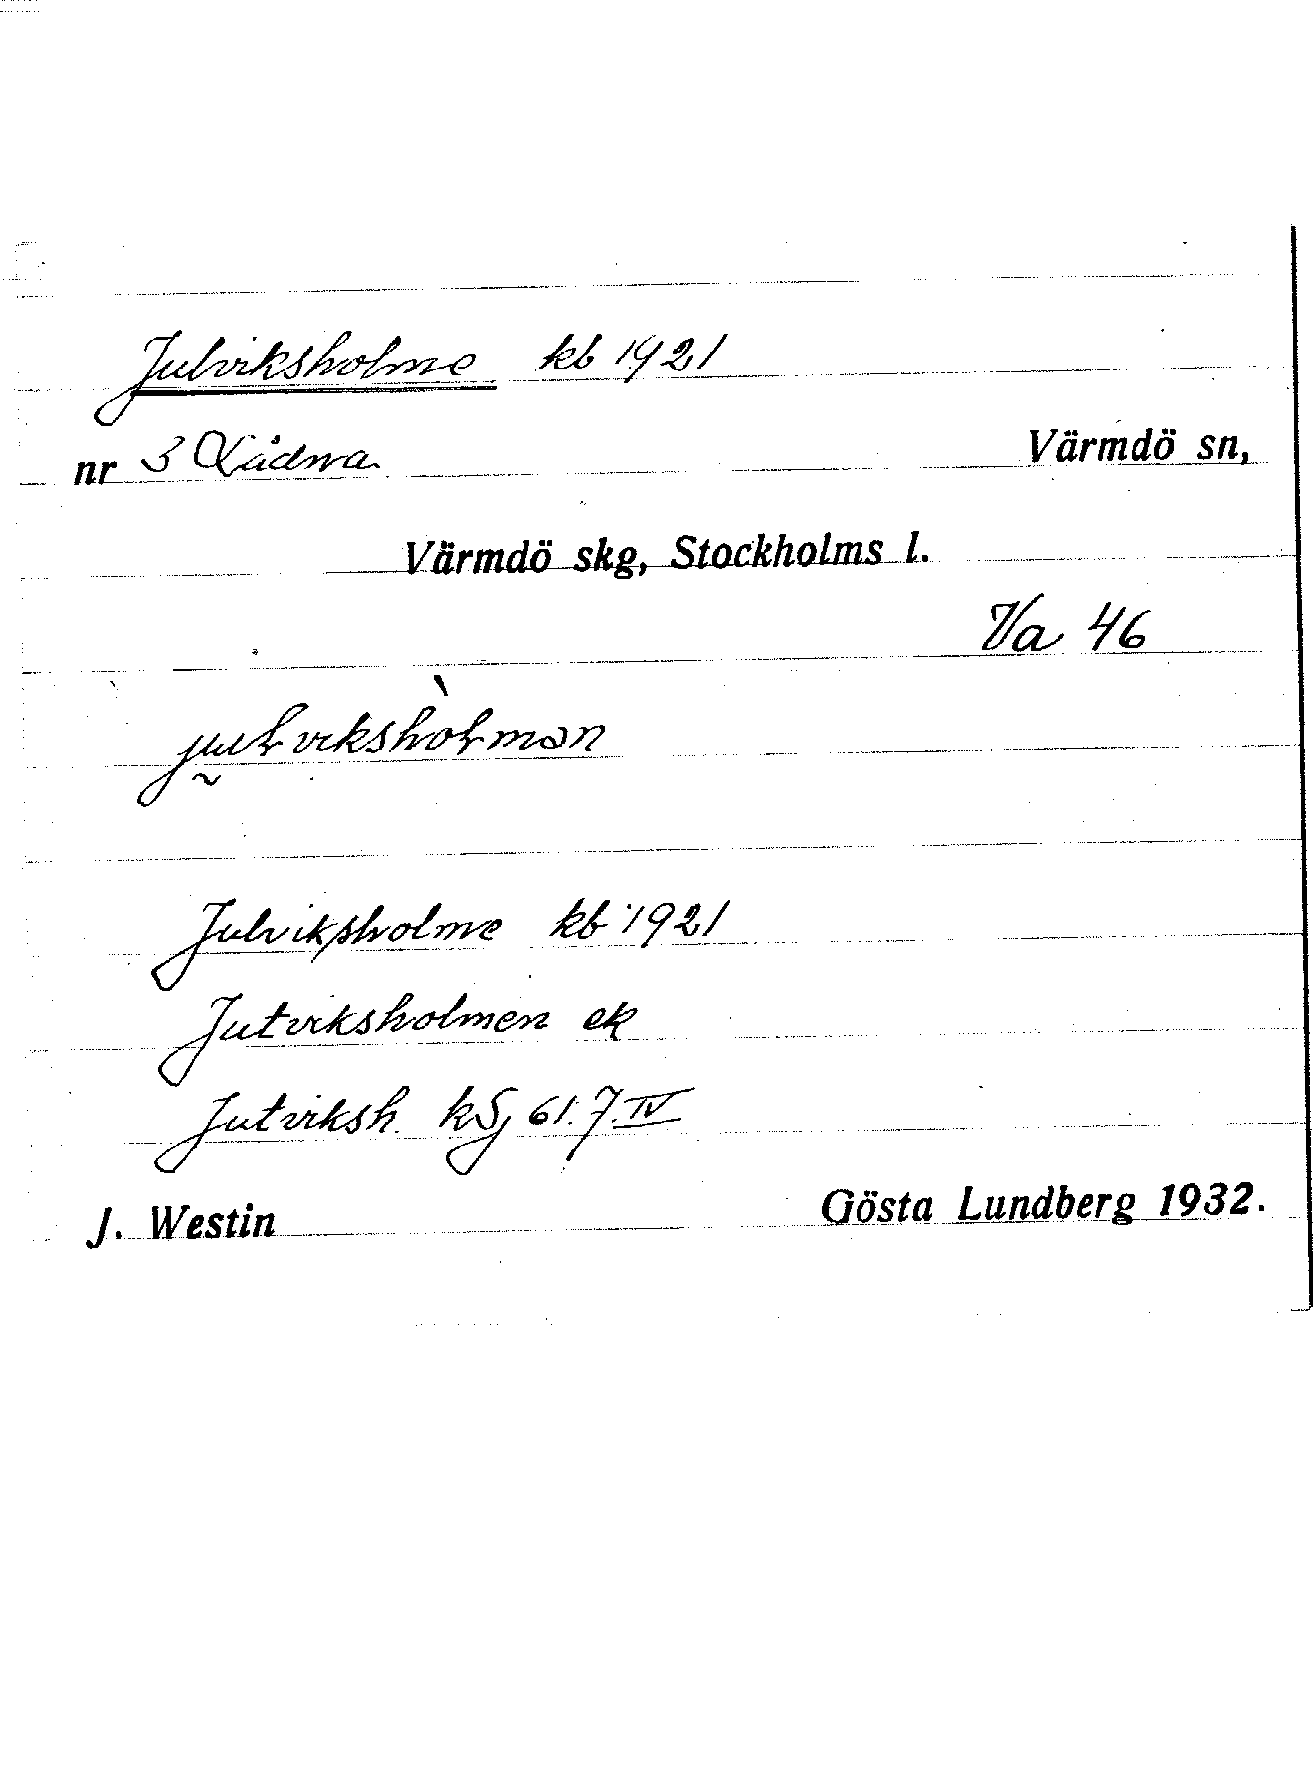 Julviksholme kb 1921
nr 3 Lådna Värmdö sn,
Värmdö skg, Stockholms l.
Va 46
Julviksholme kb 1921
Jutviksholmen ek
Jutviksh. kSj 61.7.IV
J. Westin Gösta Lundberg 1932.